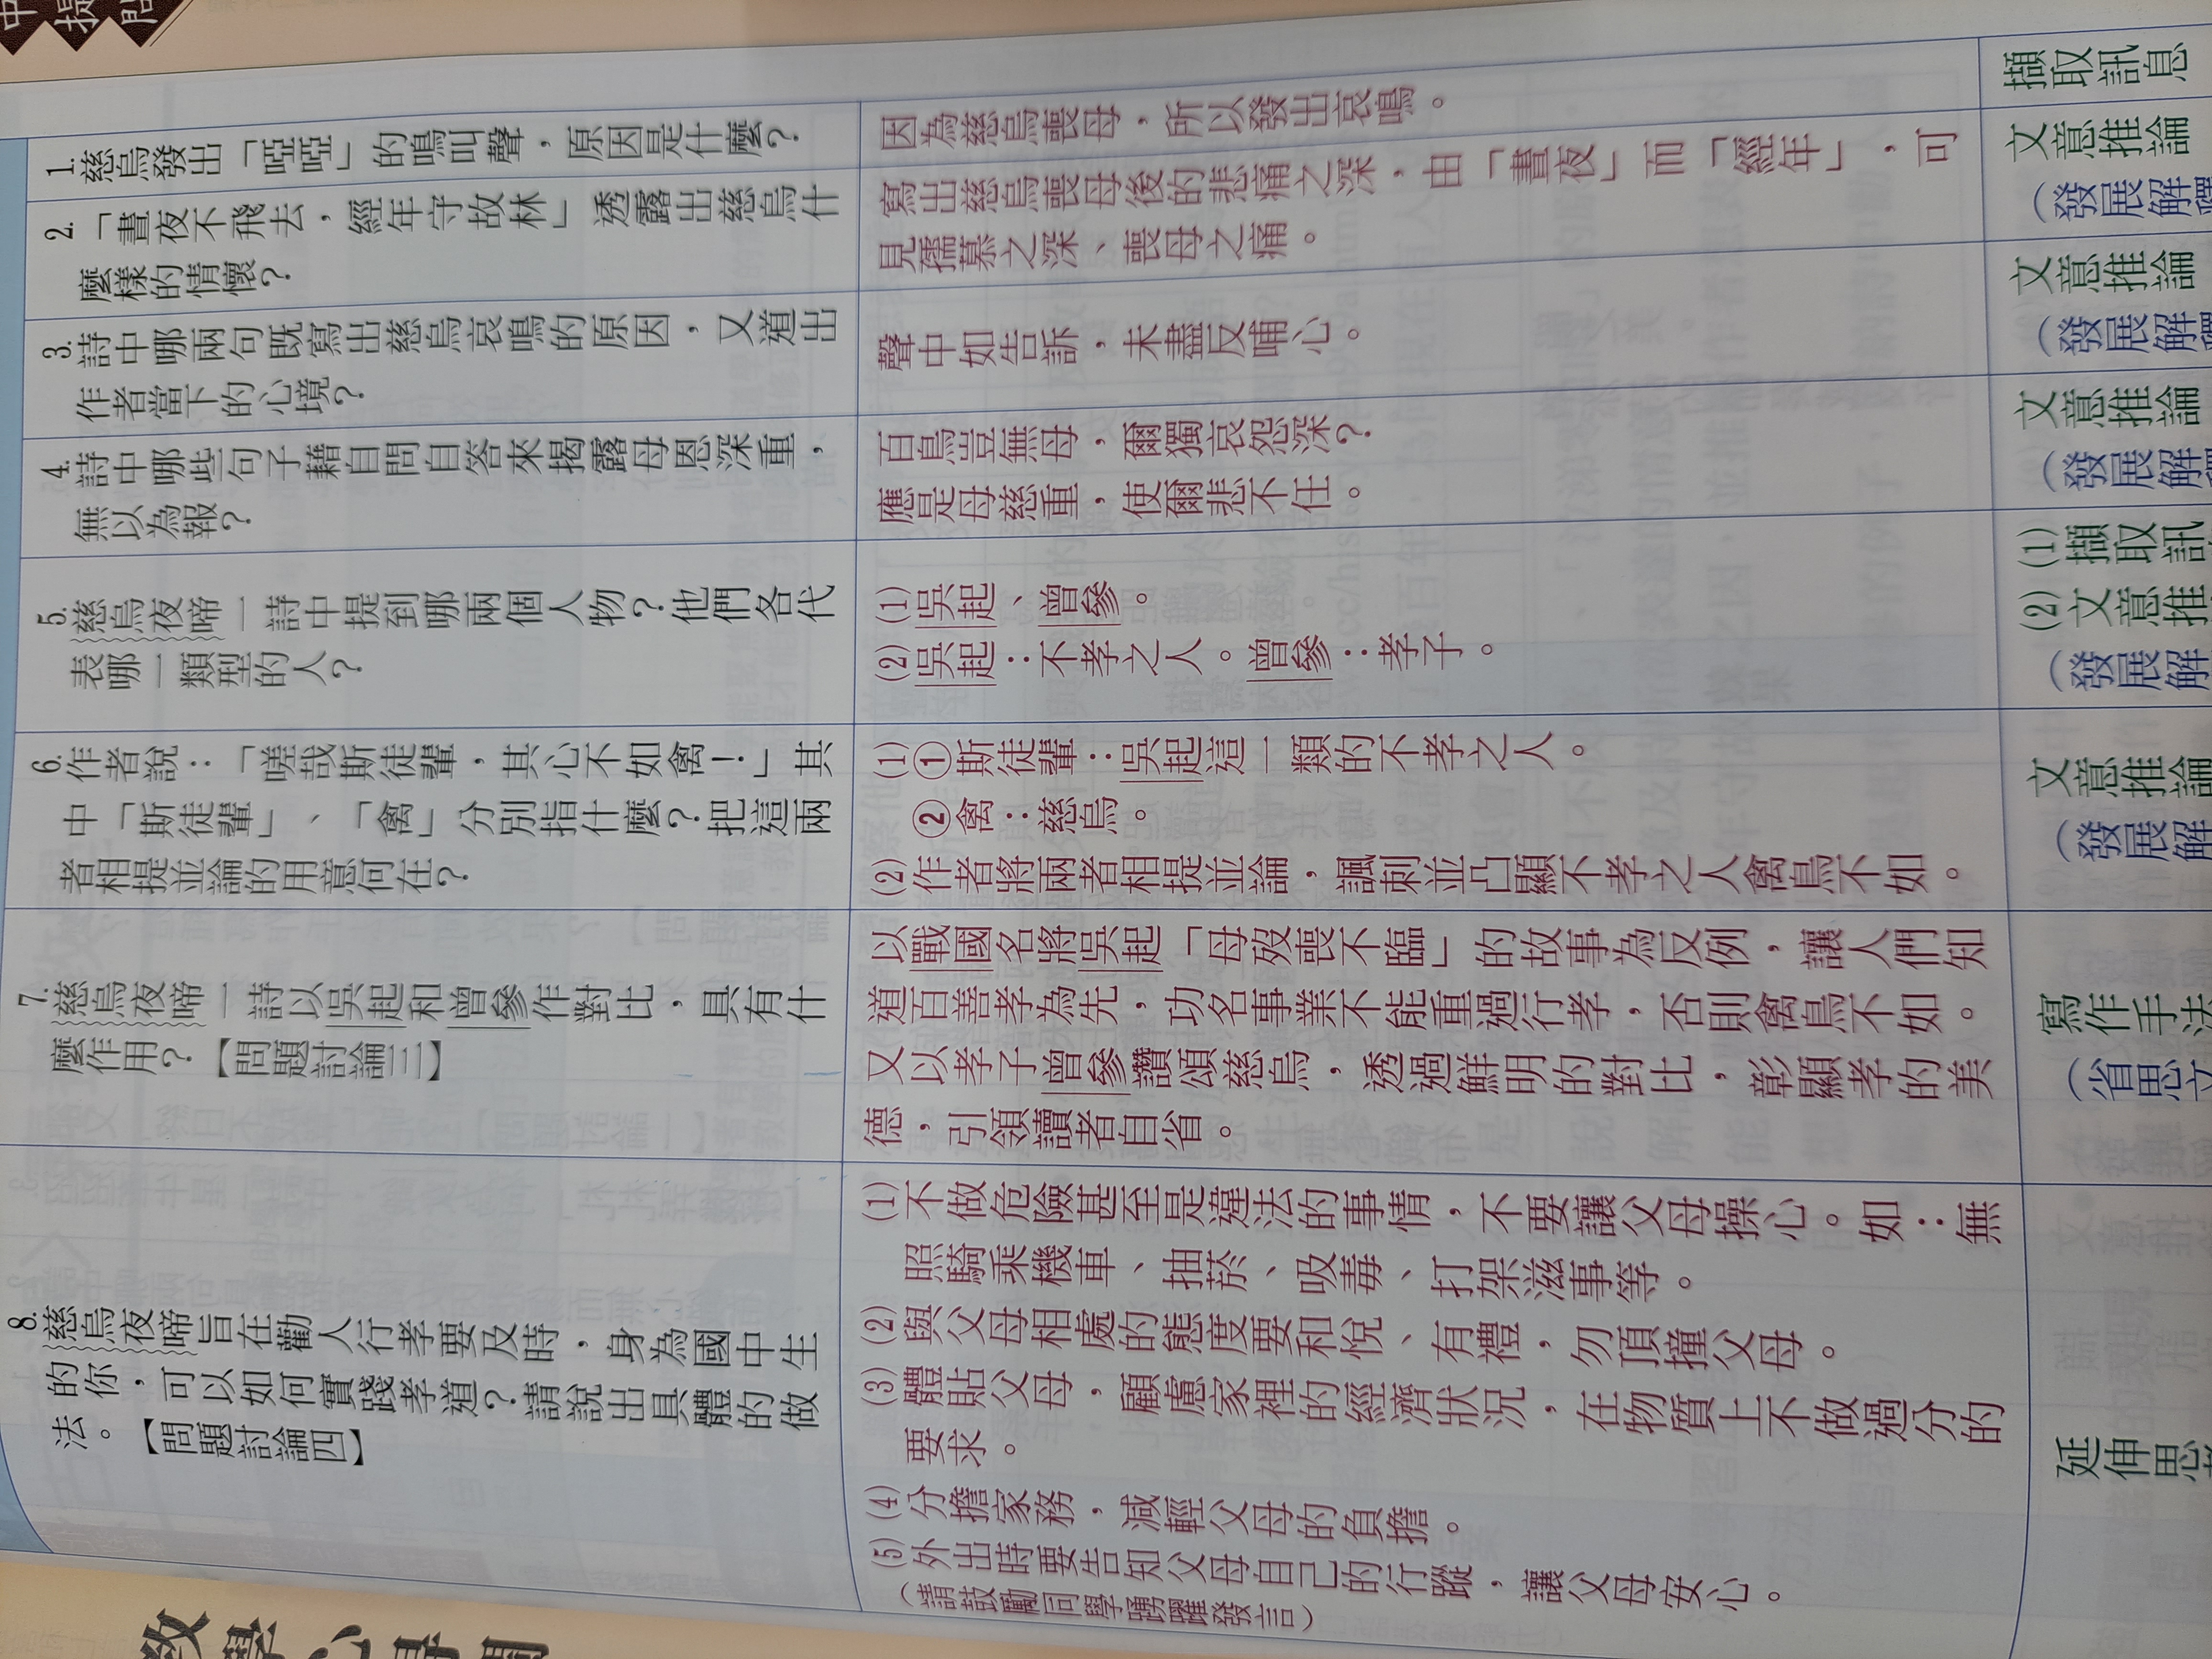 中
提
問
1.慈烏發出「啞啞」的鳴叫聲,原因是什麼?
因為慈烏喪母,所以發出哀鳴。
擷取訊息
2.「晝夜不飛去,經年守故林」透露出慈烏什
麼樣的情懷?
寫出慈烏喪母後的悲痛之深,由「晝夜」而「經年」,可
見孺慕之深、喪母之痛。
文意推論
(發展解釋
3.詩中哪兩句既寫出慈烏哀鳴的原因,又道出
作者當下的心境?
聲中如告訴,未盡反哺心。
文意推論
(發展解釋
4.詩中哪些句子藉自問自答來揭露母恩深重,
無以為報?
百鳥豈無母,爾獨哀怨深?
應是母慈重,使爾悲不任。
文意推論
(發展解釋
5.慈烏夜啼一詩中提到哪兩個人物?他們各代
表哪一類型的人?
(1)吳起、曾參。
(2)吳起:不孝之人。曾參:孝子。
(1)擷取訊
(2)文意推
(發展解
6.作者說:「嗟哉斯徒輩,其心不如禽!」其
中「斯徒輩」、「禽」分別指什麼?把這兩
者相提並論的用意何在?
(1)①斯徒輩:吳起這一類的不孝之人。
②禽:慈烏。
(2)作者將兩者相提並論,諷刺並凸顯不孝之人禽鳥不如。
文意推論
(發展解
7.慈烏夜啼一詩以吳起和曾參作對比,具有什
麼作用?【問題討論三】
以戰國名將吳起「母歿喪不臨」的故事為反例,讓人們知
道百善孝為先,功名事業不能重過行孝,否則禽鳥不如。
又以孝子曾參讚頌慈烏,透過鮮明的對比,彰顯孝的美
德,引領讀者自省。
寫作手法
(省思文
8.慈烏夜啼旨在勸人行孝要及時,身為國中生
的你,可以如何實踐孝道?請說出具體的做
法。【問題討論四】
(1)不做危險甚至是違法的事情,不要讓父母操心。如:無
照騎乘機車、抽菸、吸毒、打架滋事等。
(2)與父母相處的態度要和悅、有禮,勿頂撞父母。
(3)體貼父母,顧慮家裡的經濟狀況,在物質上不做過分的
要求。
(4)分擔家務,減輕父母的負擔。
(5)外出時要告知父母自己的行蹤,讓父母安心。
(請鼓勵同學踴躍發言)
延伸思
教學